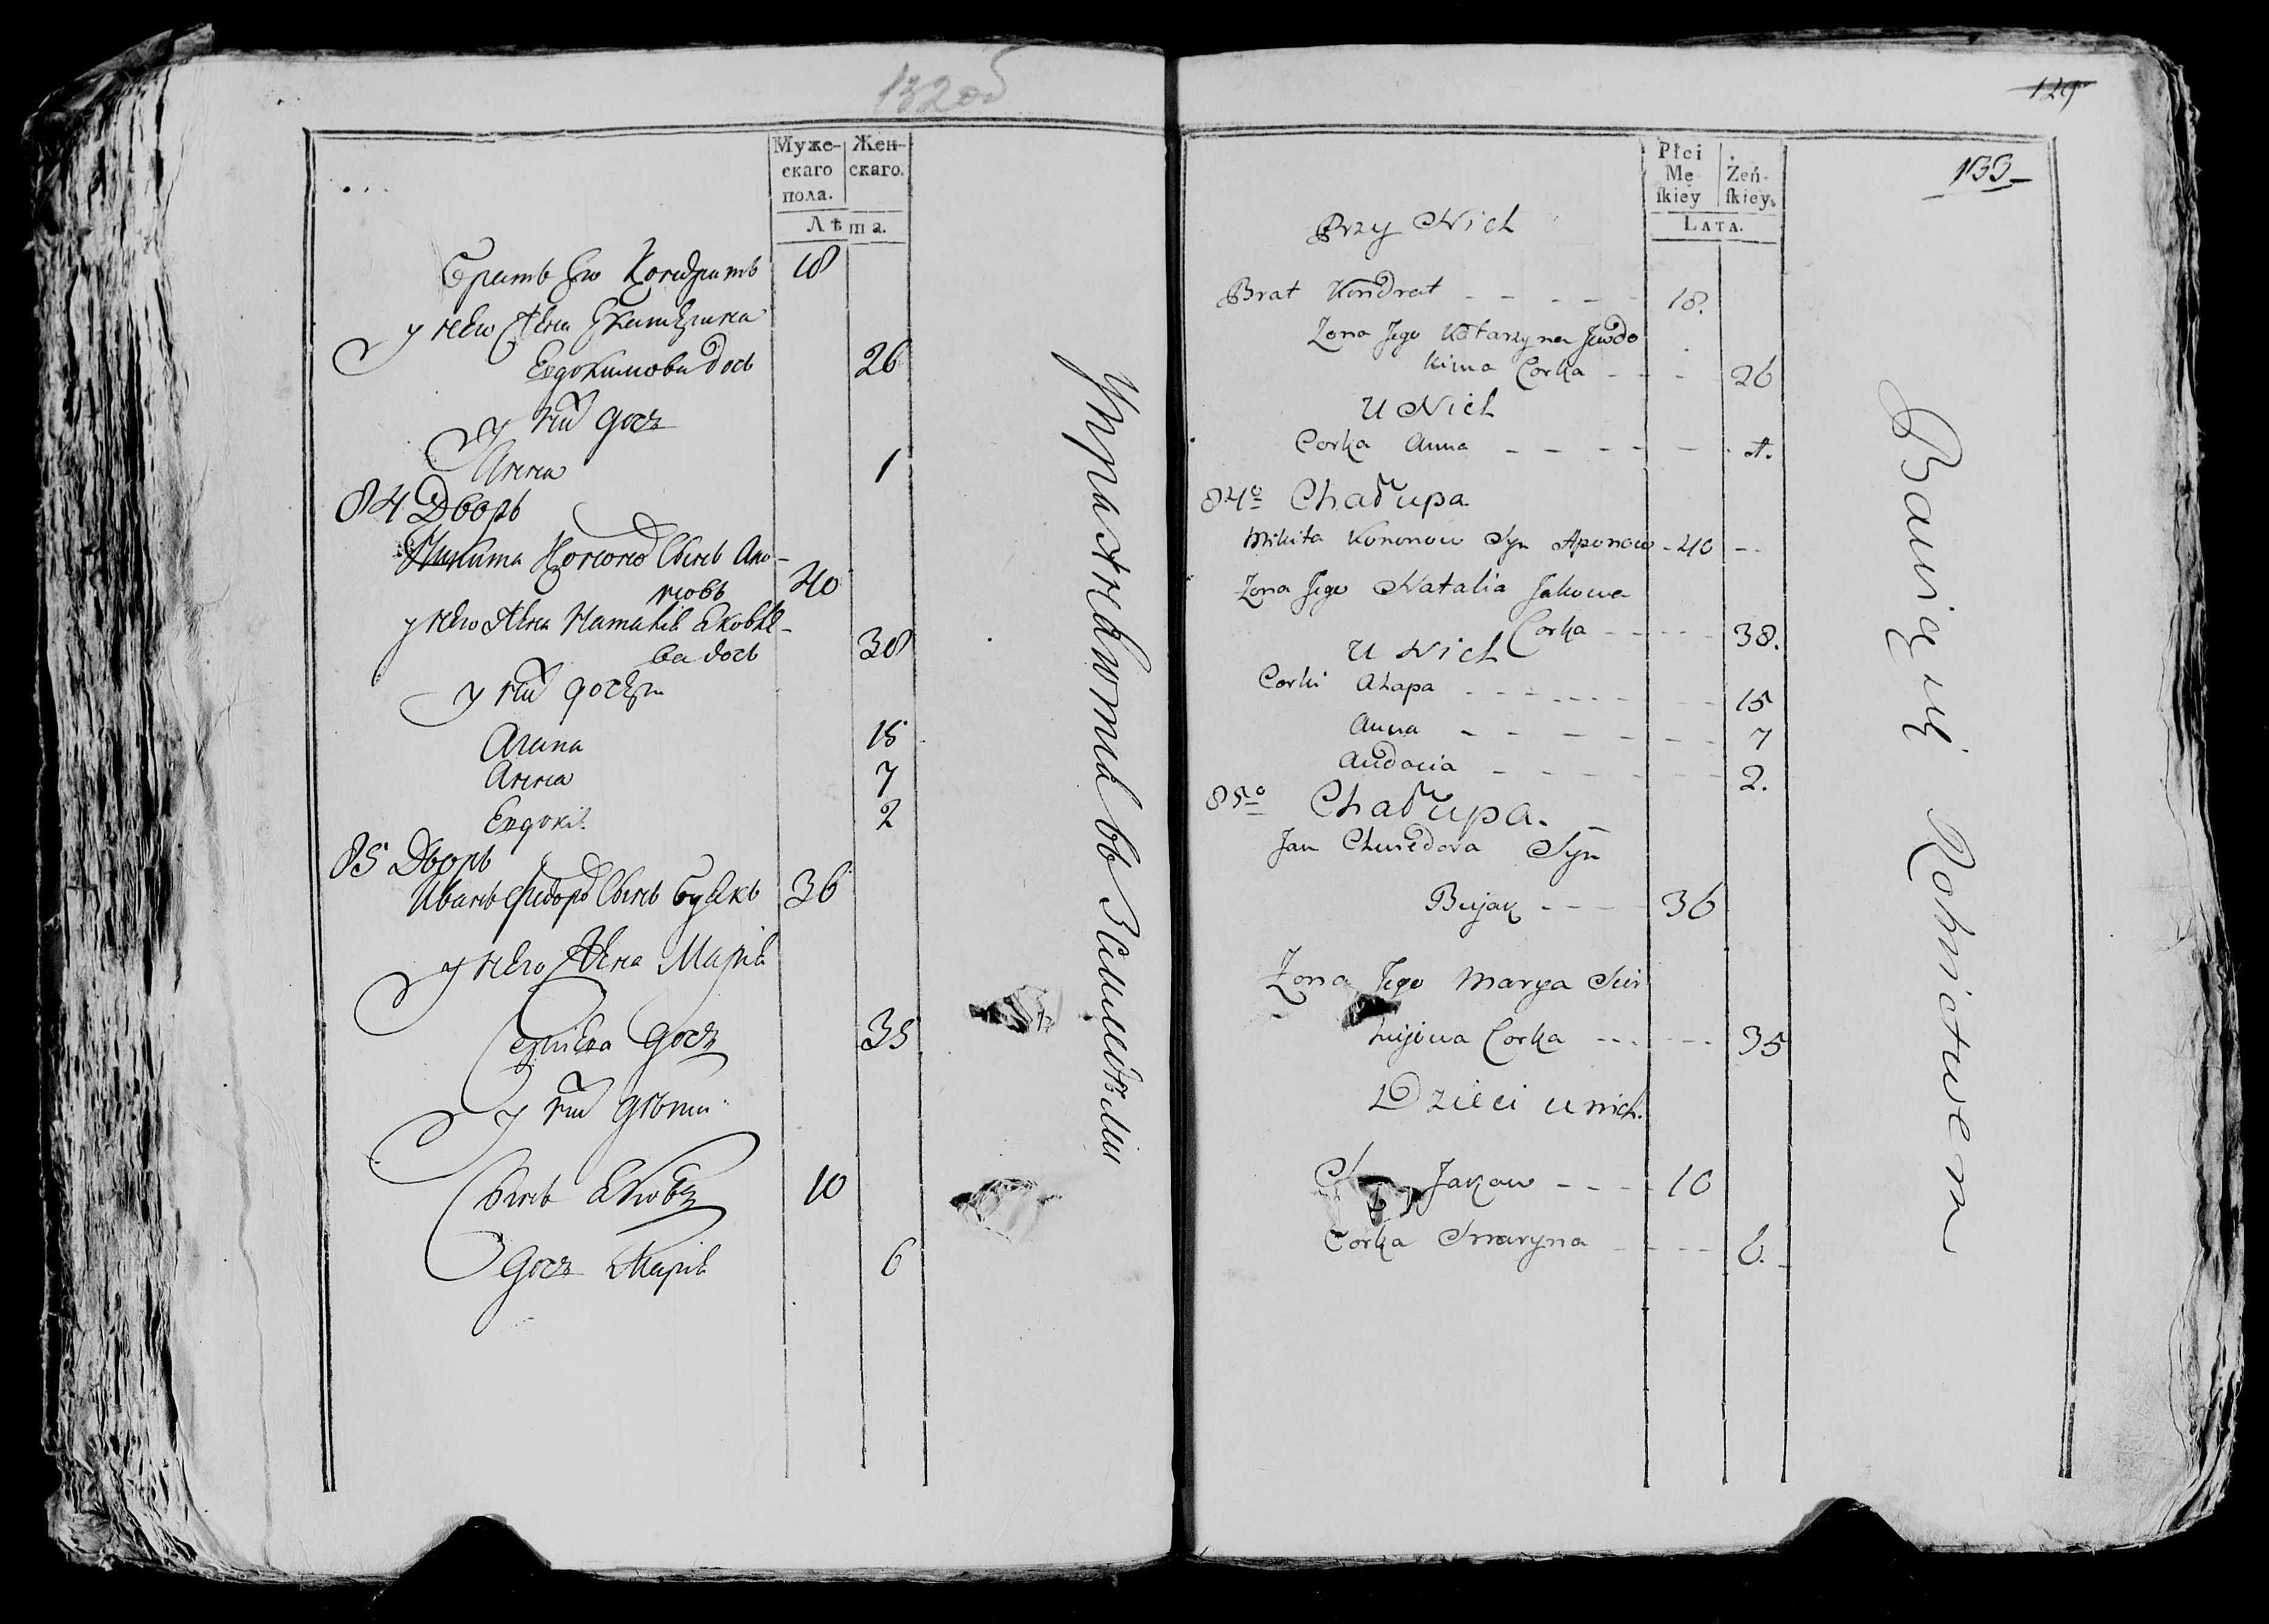 132об
Муже-
скаго
пола.
Жен-
скаго.
Лѣта.
Братъ Его Кондратъ 18
у него Жена Екатерина
Евдокимова дочь 26
у них дочь
Анна 1
84 Дворъ
Никита Кононов Сынъ Апо-
новъ 40
у него Жена Наталія Яковле-
ва дочь 38
у них дочери
Агапа 15
Анна 7
Евдокія 2
85 Дворъ
Иванъ Фиодоров Сынъ Буякъ 36
у него Жена Марія
дочь 35
у них дѣти
Сынъ Яковъ 10
дочь Марія 6
Упражняютца въ Земледѣлии
129
133
Płci
Mę
ſkiey
Żeń-
ſkiey.
LATA.
Przy Nich
Brat Kondrat 18.
Zona Jego Katarzyna Jewdo
kima Corka 26
U Nich
Corka Anna 1.
84º Chałupa
Mikita Kononow Syn Aponow 40
Zona Jego Natalia Jakowa
Corka 38.
U Nich
Corki Ahapa 15
Anna 7
Audocia 2.
85º Chałupa.
Jan Chwedora Syn
Bujak 36
Zona Jego Marya Ser
hijowa Corka 35
Dzieci u nich.
Jakow 10
Corka Maryna 6.
Bawią się Rolnictwem